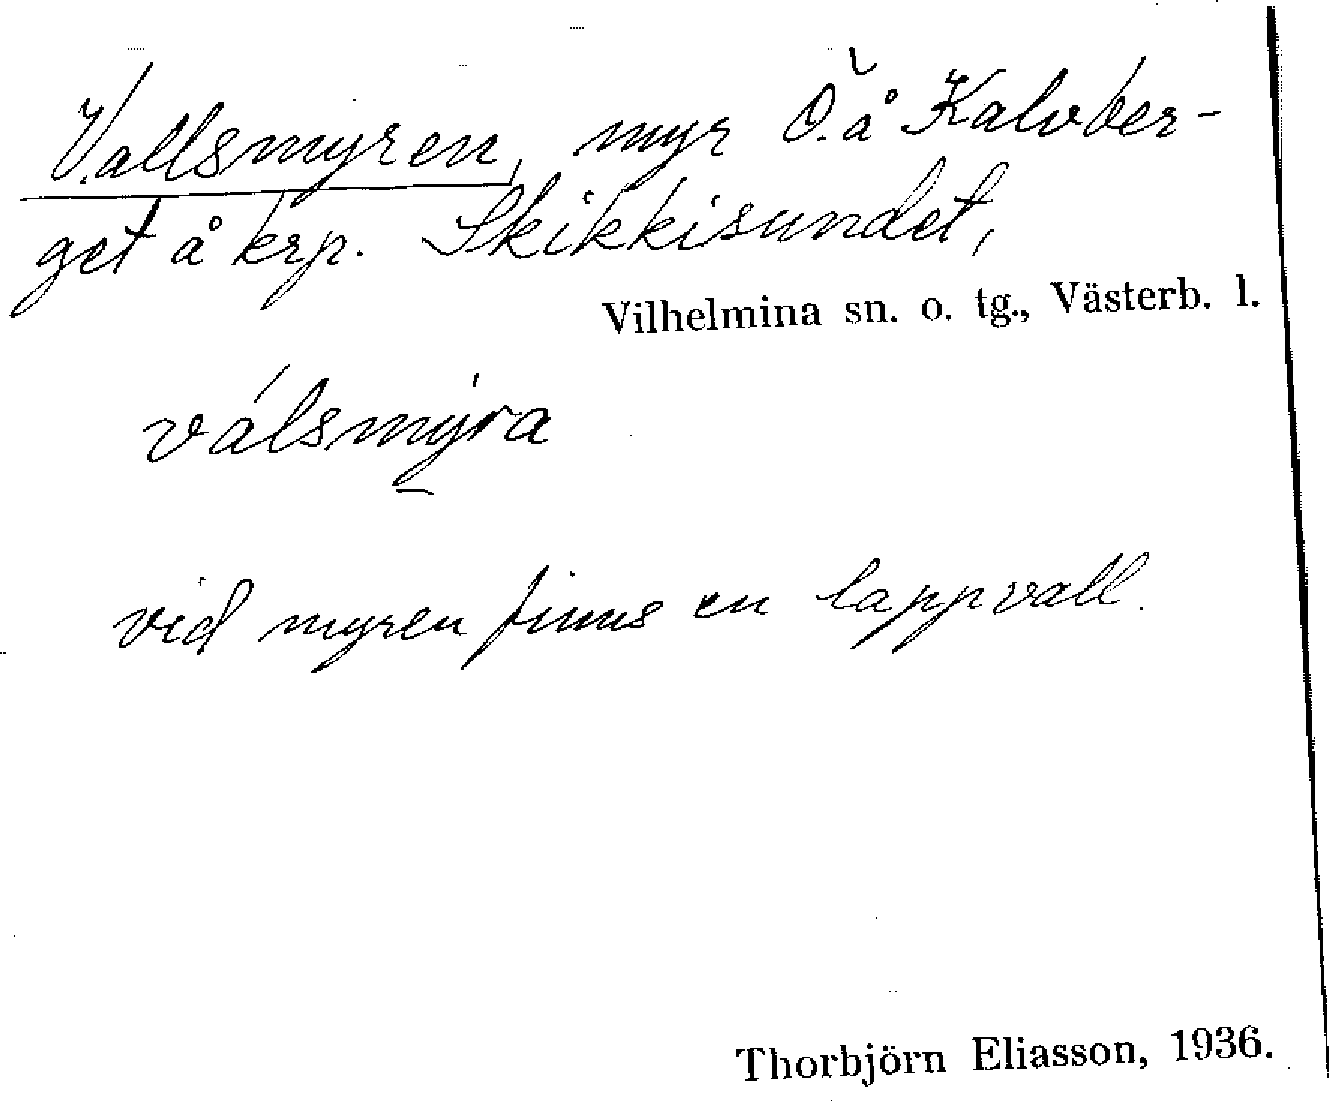 Vallsmyren, myr Ö. å Kalvber-
get å krp. Skikkisundet,
Vilhelmina sn. o. tg., Västerb. l.
válsmýra
vid myren finns en lappvall.
Thorbjörn Eliasson, 1936.